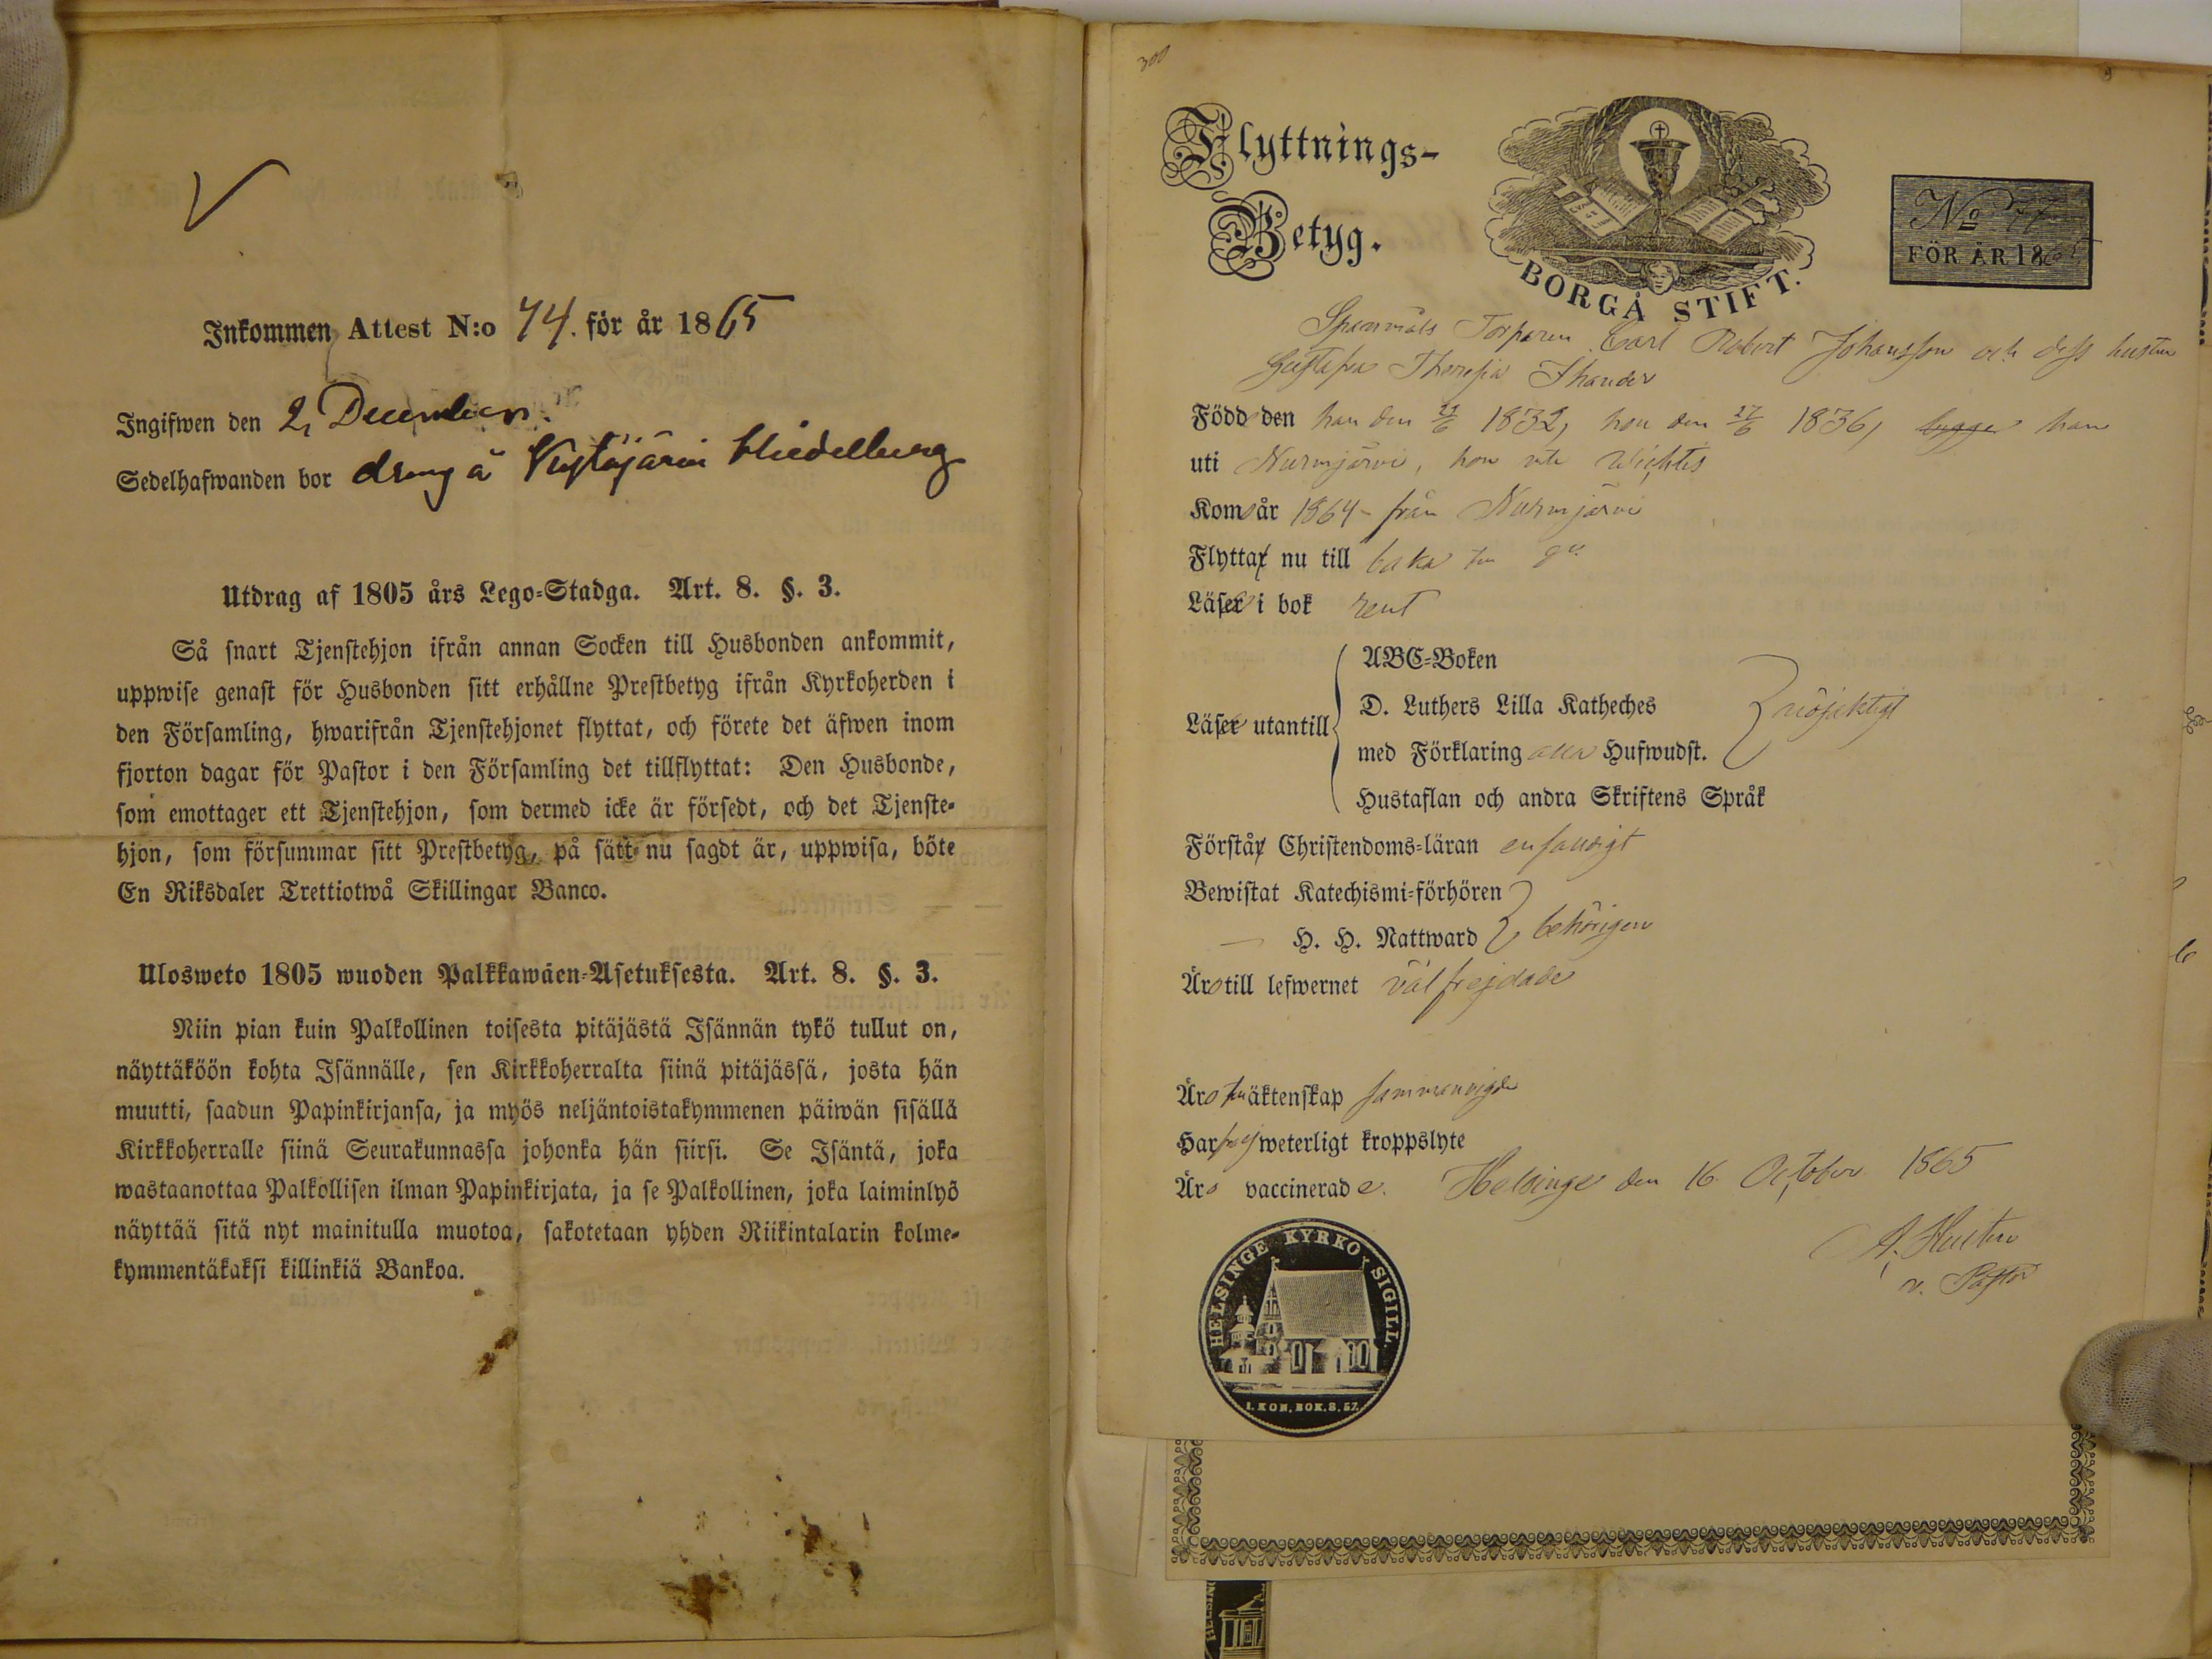 Inkommen Attest N:o 74. för år 1865
Ingifwen den 2 December.
Sedelhafwanden bor dreng å
Utdrag af 1805 års Lego-Stadga. Art. 8. §. 3.
Så snart Tjenstehjon ifrån annan Socken till Husbonden ankommit,
uppwise genast för Husbonden sitt erhållne Prestbetyg ifrån Kyrkoherden i
den Församling, hwarifrån Tjenstehjonet flyttat, och förete det äfwen inom
fjorton dagar för Pastor i den Församling det tillflyttat: Den Husbonde,
som emottager ett Tjenstehjon, som dermed icke är försedt, och det Tjenste-
hjon, som försummar sitt Prestbetyg, på sätt nu sagdt är, uppwisa, böte
En Riksdaler Trettiotwå Skillingar Banco.
Ulosweto 1805 wuoden Palkkawäen-Asetuksesta. Art. 8. §. 3.
Niin pian kuin Palkollinen toisesta pitäjästä Isännän tykö tullut on,
näyttäköön kohta Isännälle, sen Kirkkoherralta siinä pitäjässä, josta hän
muutti, saadun Papinkirjansa, ja myös neljäntoistakymmenen päiwän sisällä
Kirkkoherralle siinä Seurakunnassa johonka hän siirsi. Se Isäntä, joka
wastaanottaa Palkollisen ilman Papinkirjata, ja se Palkollinen, joka laiminlyö
näyttää sitä nyt mainitulla muotoa, sakotetaan yhden Riikintalarin kolme-
kymmentäkaksi killinkiä Bankoa.
300
Flyttnings-
Betyg.
BORGÅ STIFT.
No 77
FÖR ÅR 1865
Torparen Carl Robert Johansson och dess hustru
Gustafva Theresia Thander
Födde den han den 21/6 1832, hon den 27/6 1836, han
uti Nurmijärvi, hon uti Wichtis
Komo år 1864 från Nurmijärvi
Flytta nu till baka
Läse i bok rent
ABC-Boken
D. Luthers Lilla Katheches
Läse utantill
med Förklaring alla Hufwudst.
nöjaktigt
Hustaflan och andra Skriftens Språk
Förstå Christendoms-läran enfaldigt
Bewistat Katechismi-förhören
— H. H. Nattward behörigen
Äro till lefwernet välfrejdade
Äro till äktenskap sammanvigde
Hafva ej weterligt kroppslyte
Äro vaccinerade. Helsinge den 16 October 1865
v. Pastor
HELSINGE KYRKO SIGILL.
I. KON. BOK. 8. 57.